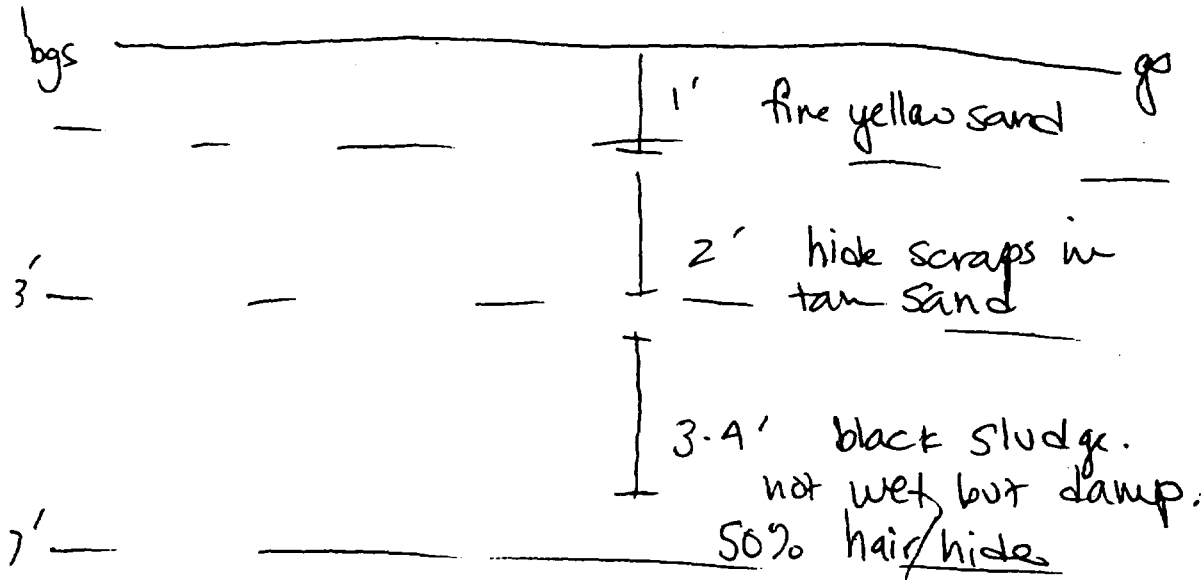 bgs gs
1' fine yellow sand
2' hide scraps in
3' tan sand
3-4' black sludge.
not wet, but damp.
7' 50% hair/hide